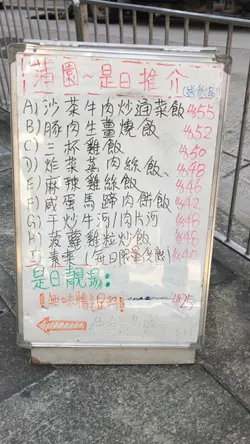 蒲園~是日推介
(送飲品)
A) 沙茶牛肉炒通菜飯 $55
B) 豚肉生薑燒飯 $52
C) 三杯雞飯 $50
D) 炸菜肉絲飯 $48
E) 麻辣雞絲飯 $46
F) 咸蛋馬蹄肉餅飯 $42
G) 干炒牛河/肉片河 $48
H) 菠蘿雞粒炒飯 $48
I) 素菜(每日限量供應) $40
是日靚湯:
$25